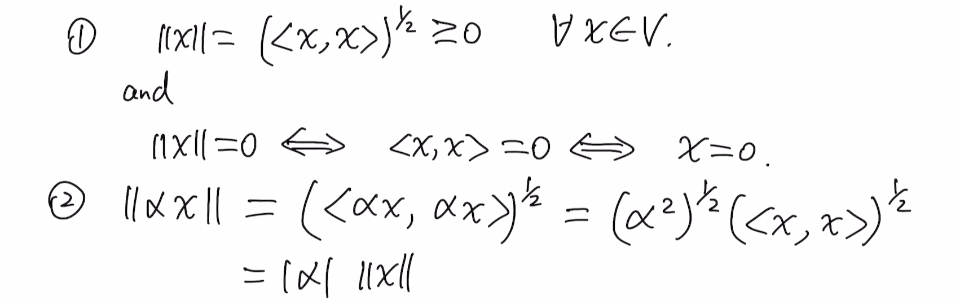 ① ||x|| = (<x,x>)^½ ≥ 0 ∀ x ∈ V.
and
||x|| = 0 ⟺ <x,x> = 0 ⟺ x = 0.
② ||αx|| = (<αx, αx>)^½ = (α²)^½ (<x,x>)^½
= |α| ||x||